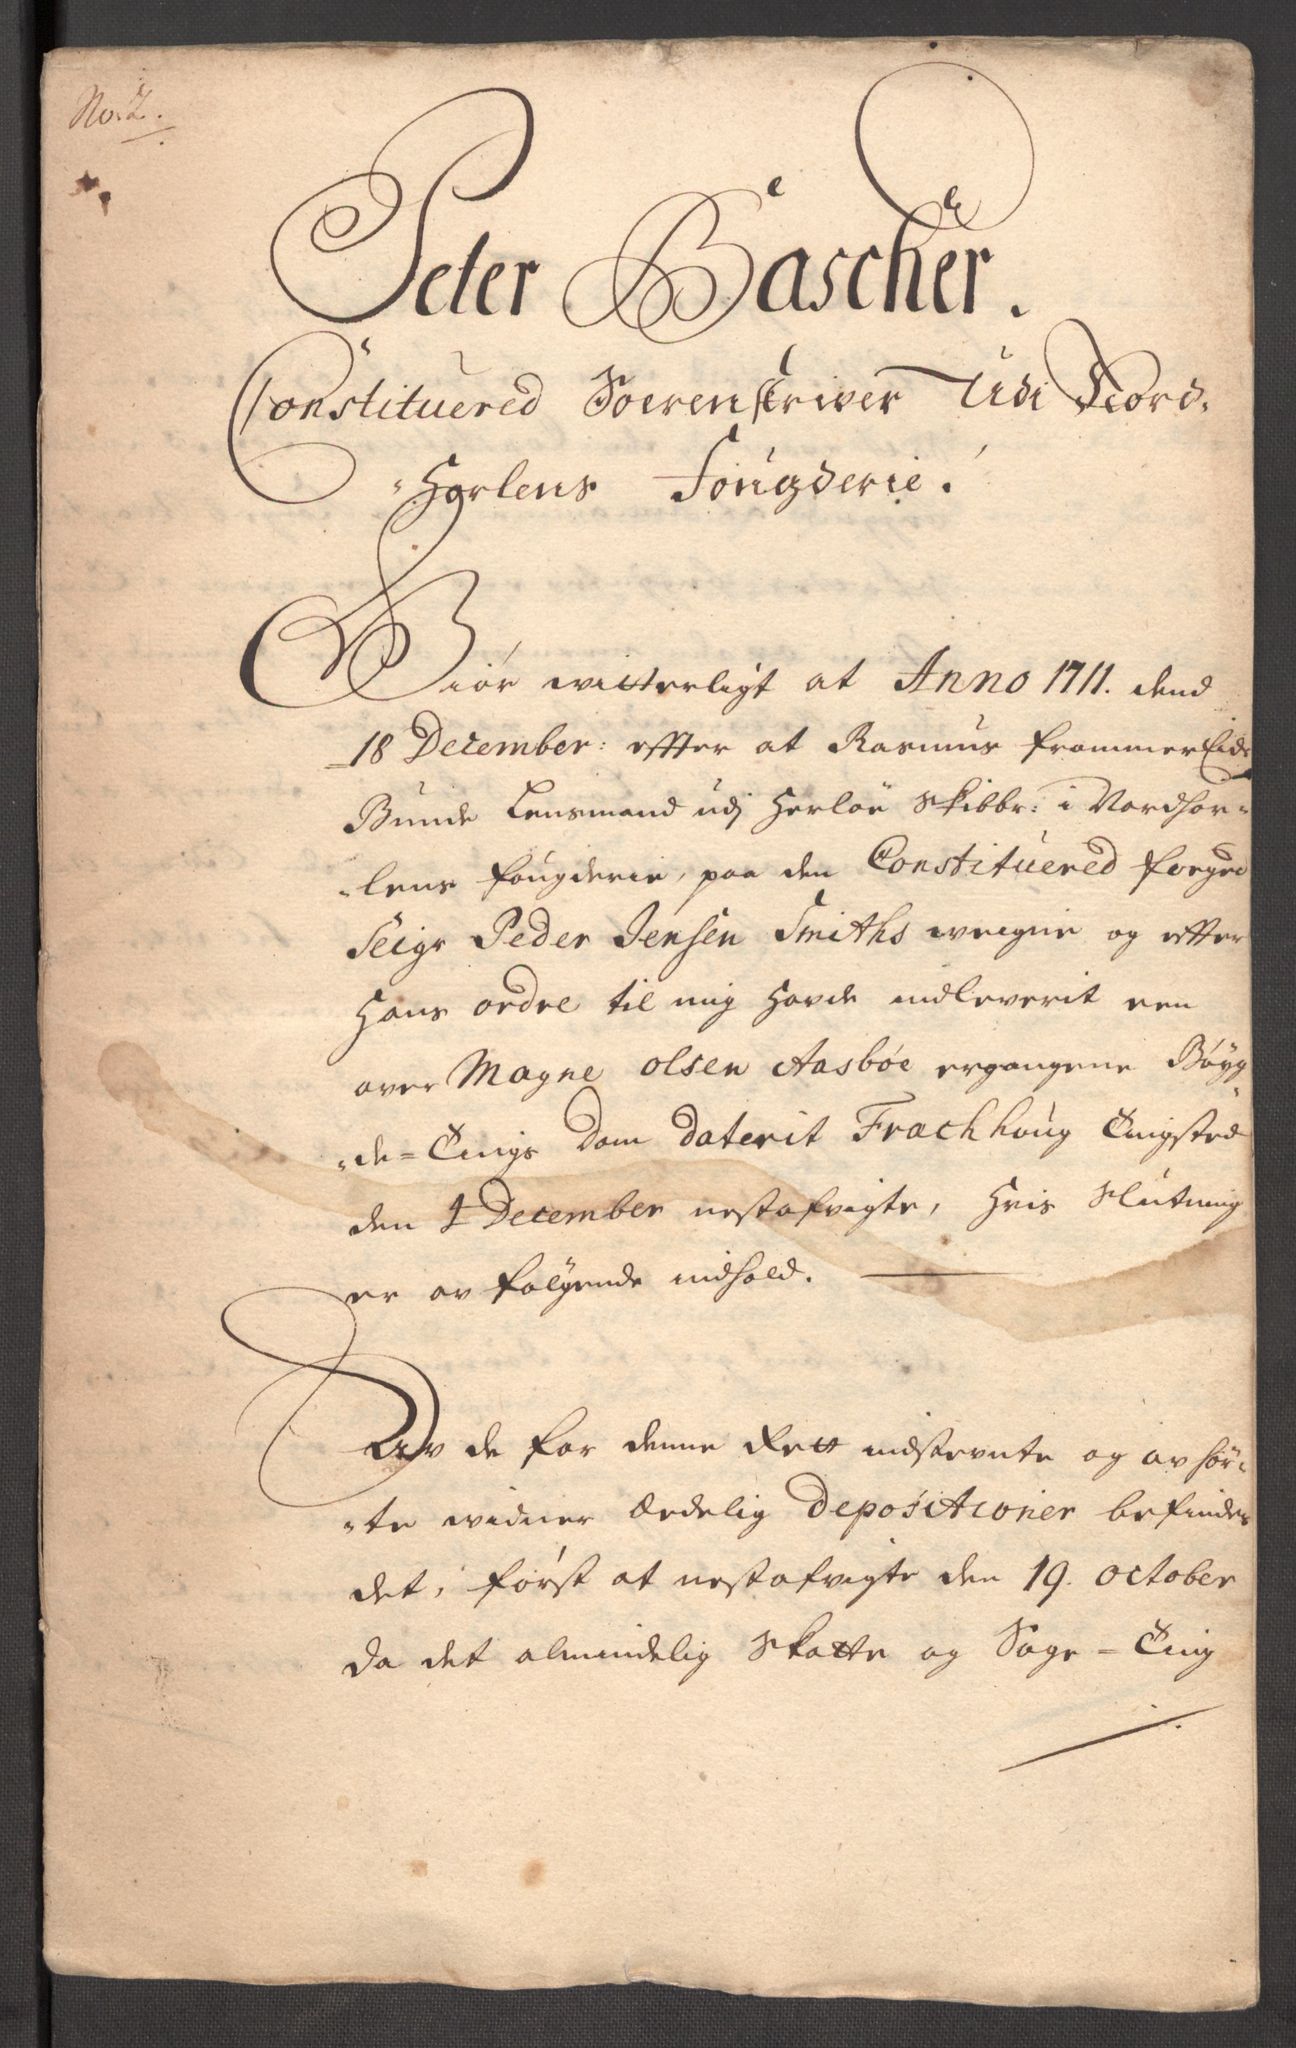 No. 2.
Peter Bascher.
Constituered Sorenskriver Udi Nord-
Horlens Fougderie.
Giör witterligt at Anno 1711. dend
18 December: effter at Rasmus frammer Eide
Bunde Lensmand udj Herlöe Skibbr: i Nordhor-
lens fougderie, paa den Constituered foeget
Seigr Peder Jensen Smiths weigne og effter
Hans ordre til mig hafde indleverit een
over Magne olsen Aasböe ergangene Böyg
de-Tings Dom daterit Frachhoug Tingsted
den 4 December nestafvigte, Hvis Slutning
er av følgende indhold.
Av de for denne Rett indstevnte og av hör-
te widner Ædelig Depositioner befindes
det, först at nestafvigte den 19. october
da det almindelig Skatte og Sage-Ting